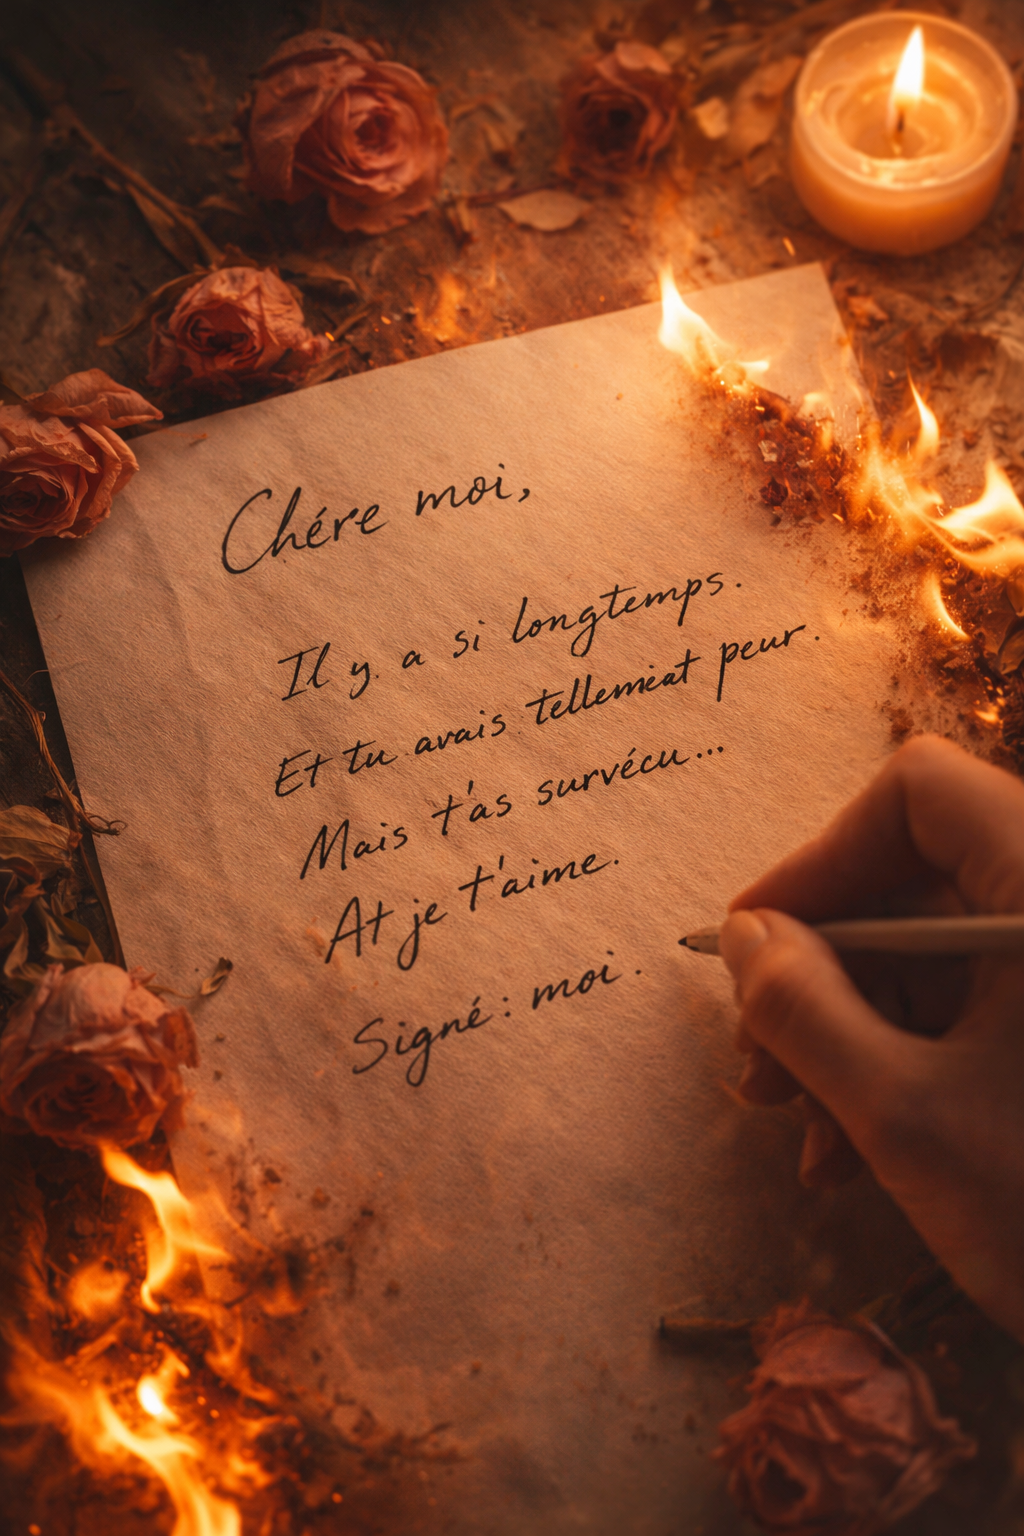 Chére moi,
Il y a si longtemps.
Et tu avais tellemeat peur.
Mais t'as survécu...
At je t'aime.
Signé: moi.